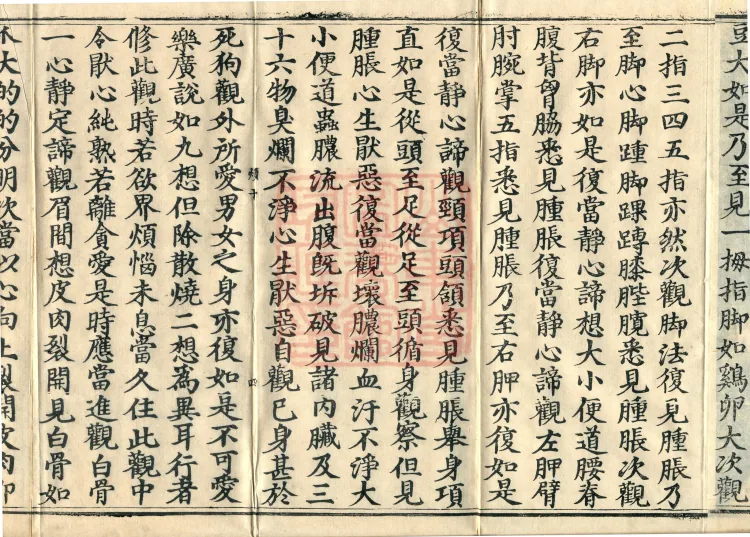 豆大如是乃至見一拇指脚如鷄卵大次觀
二指三四五指亦然次觀脚法復見腫脹乃
至脚心脚踵脚踝蹲膝䏶臗悉見腫脹次觀
右脚亦如是復當靜心諦想大小便道腰脊
腹背胷脇悉見腫脹復當靜心諦觀左胛臂
肘腕掌五指悉見腫脹乃至右胛亦復如是
復當靜心諦觀頸項頭頷悉見腫脹舉身項
直如是從頭至足從足至頭循身觀察但見
腫脹心生猒惡復當觀壞膿爛血汙不淨大
小便道蟲膿流出腹旣坼破見諸內臟及三
十六物臭爛不淨心生猒惡自觀已身甚於
死狗觀外所愛男女之身亦復如是不可愛
樂廣說如九想但除散燒二想爲異耳行者
修此觀時若欲界煩惱未息當久住此觀中
令猒心純熟若離貪愛是時應當進觀白骨
一心靜定諦觀眉間想皮肉裂開見白骨如
大的的分明次當以心向上裂開皮肉卽